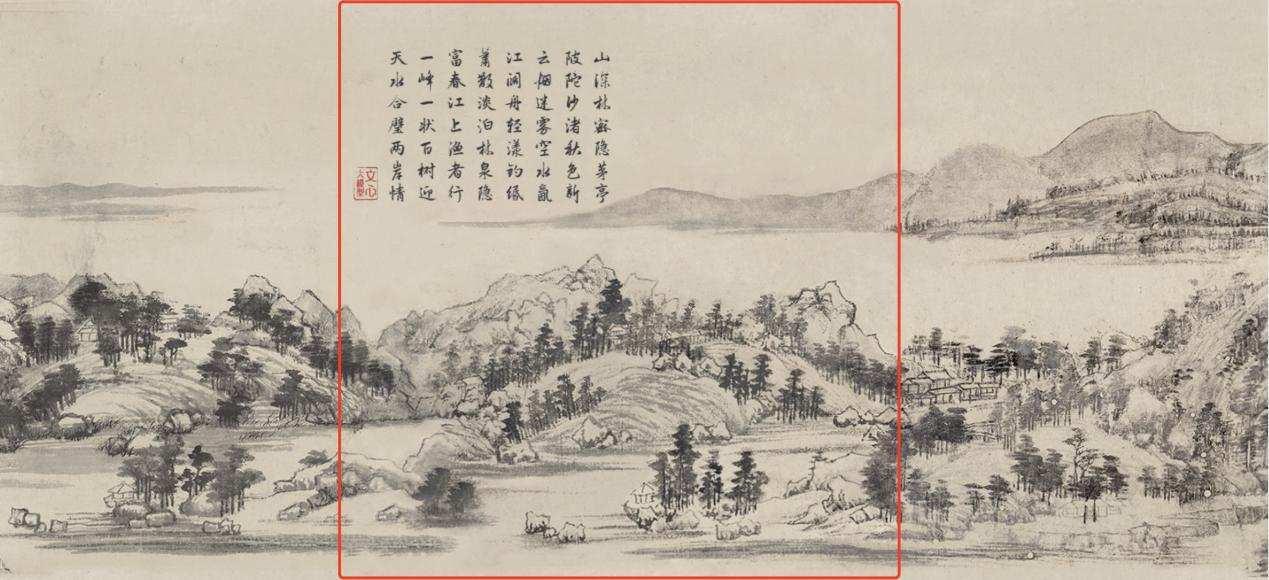 山深林寂隐茅亭
陂陀沙渚秋色新
云烟迷雾空水氤
江阔舟轻漾钓缗
萧散淡泊林泉隐
富春江上渔者行
一峰一状百树迎
天水合璧两岸情
文心
大模型